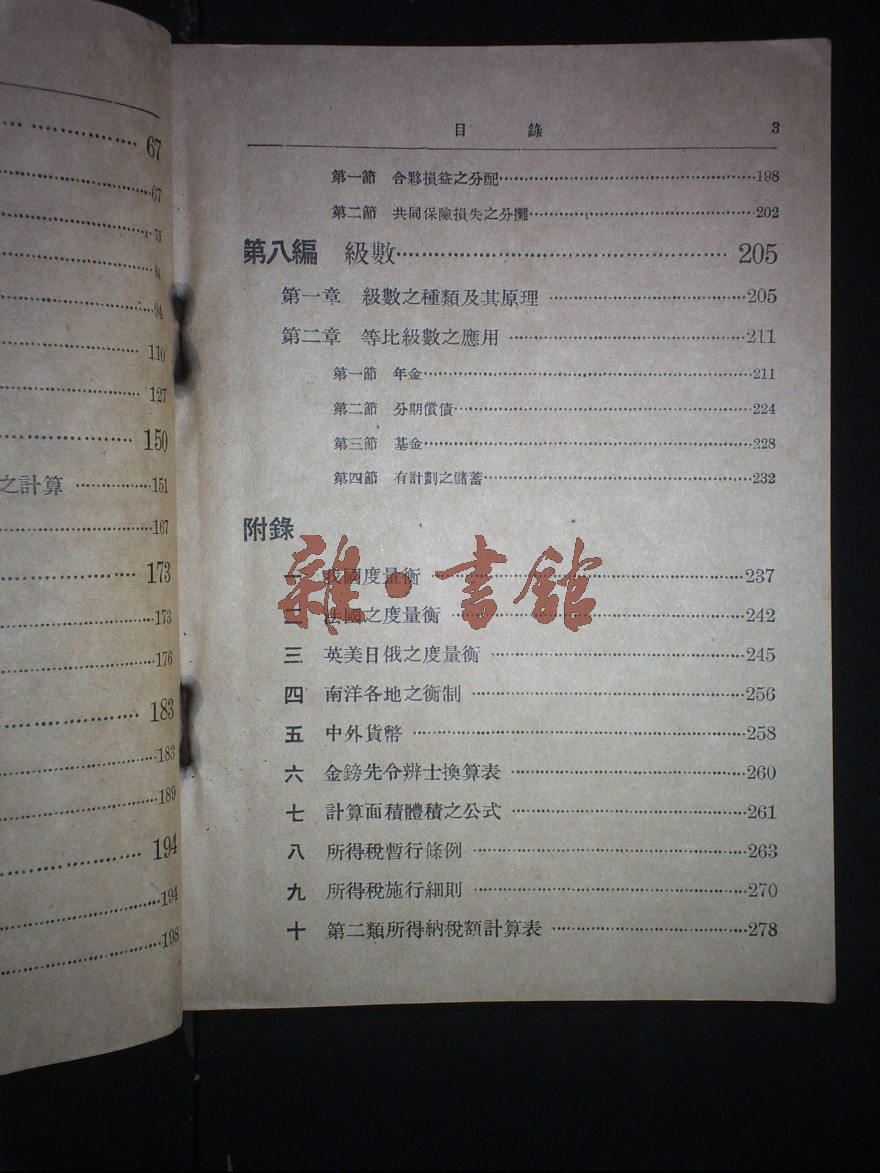 67
67
75
84
94
110
127
150
之計算 151
167
173
173
176
183
183
189
194
194
198
目 錄 3
第一節 合夥損益之分配 198
第二節 共同保險損失之分攤 202
第八編 級數 205
第一章 級數之種類及其原理 205
第二章 等比級數之應用 211
第一節 年金 211
第二節 分期償債 224
第三節 基金 228
第四節 有計劃之儲蓄 232
附錄
一 我國度量衡 237
二 法國之度量衡 242
雜·書館
三 英美日俄之度量衡 245
四 南洋各地之衡制 256
五 中外貨幣 258
六 金鎊先令辨士換算表 260
七 計算面積體積之公式 261
八 所得稅暫行條例 263
九 所得稅施行細則 270
十 第二類所得納稅額計算表 278